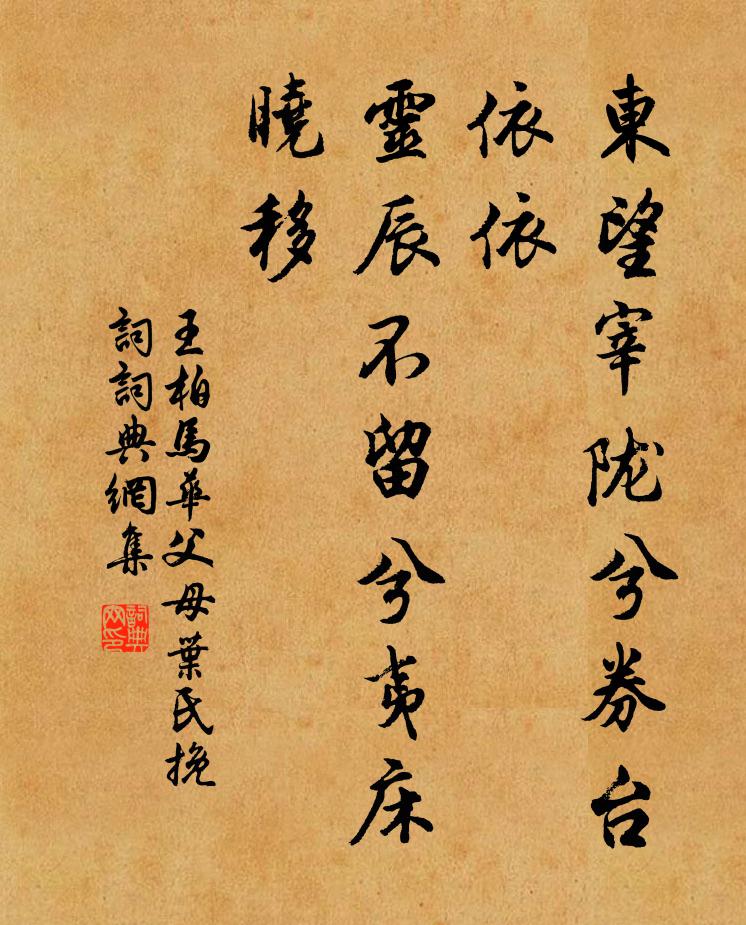 東望宰陇兮券台
依依
靈辰不留兮夷床
曉移
王柏馬華父母葉氏挽
詞詞典網集
詞典网印